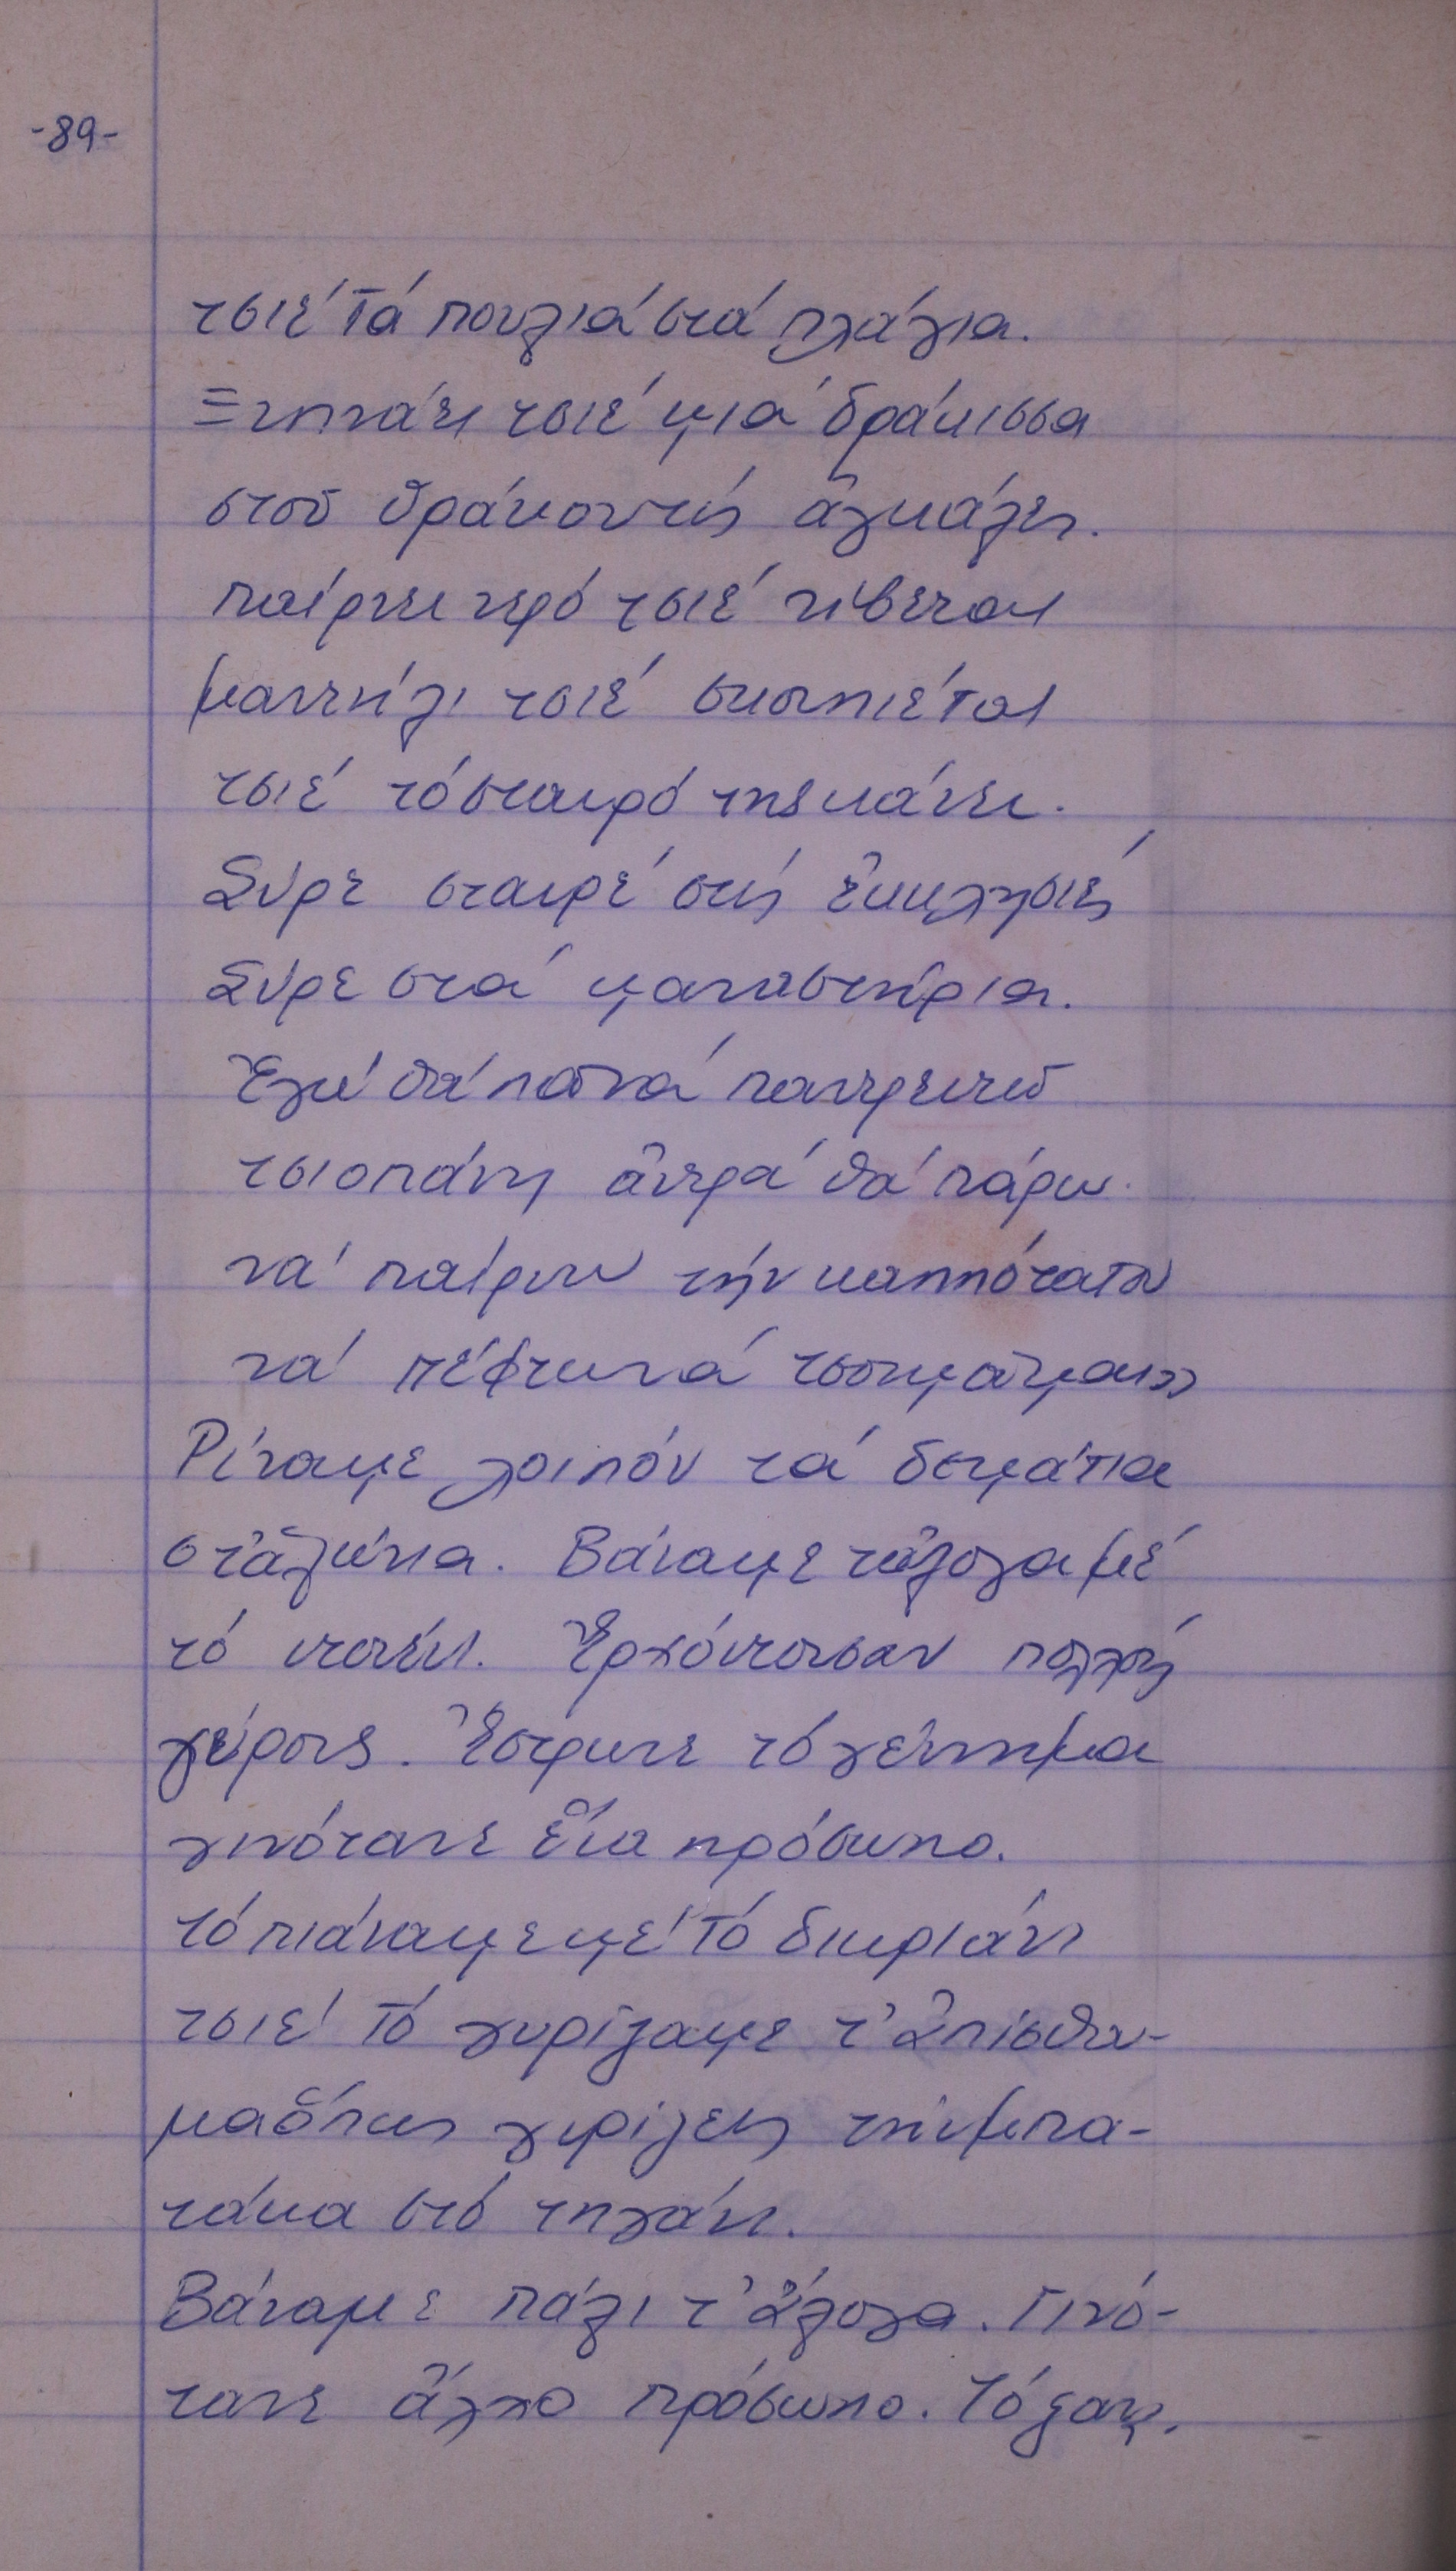 -89-
τσιέ τά πουλιά στά πλάγια.
Ξυπνάει τσιέ μιά δράκισσα
στοῦ δράκοντις ἀγκάλες.
παίρνει νερό τσιέ νίβεται
μαντήλι τσιέ σκουπιέται
τσιέ τό σταυρό της κάνει.
Σύρε σταυρέ στίς ἐκκλησιές
Σύρε στά μαναστήρια.
Ἐγώ θά πά νά παντρευτῶ
τσιοπάνη ἄντρα θά πάρω.
νά παίρνω τήν καππότα του
νά πέφτω νά τσοιμᾶμαι»
Ρίναμε λοιπόν τά δεμάτια
στἀλώνια. Βάναμε τἄλογα μέ
τό ντουένι. Ἐρχόντουσαν πολλές
γύρους. Ἔστρωνε τό γέννημα
γινότανε ἕνα πρόσωπο.
τό πιάναμε μέ τό δικριάνι
τσιέ τό γυρίζαμε τ' ἀπίσθω-
μα ὅπως γυρίζεις τήν μπα-
τάκα στό τηγάνι.
Βάναμε πάλι τ' ἄλογα. Γινό-
τανε ἄλλο πρόσωπο. Τό ξαν.